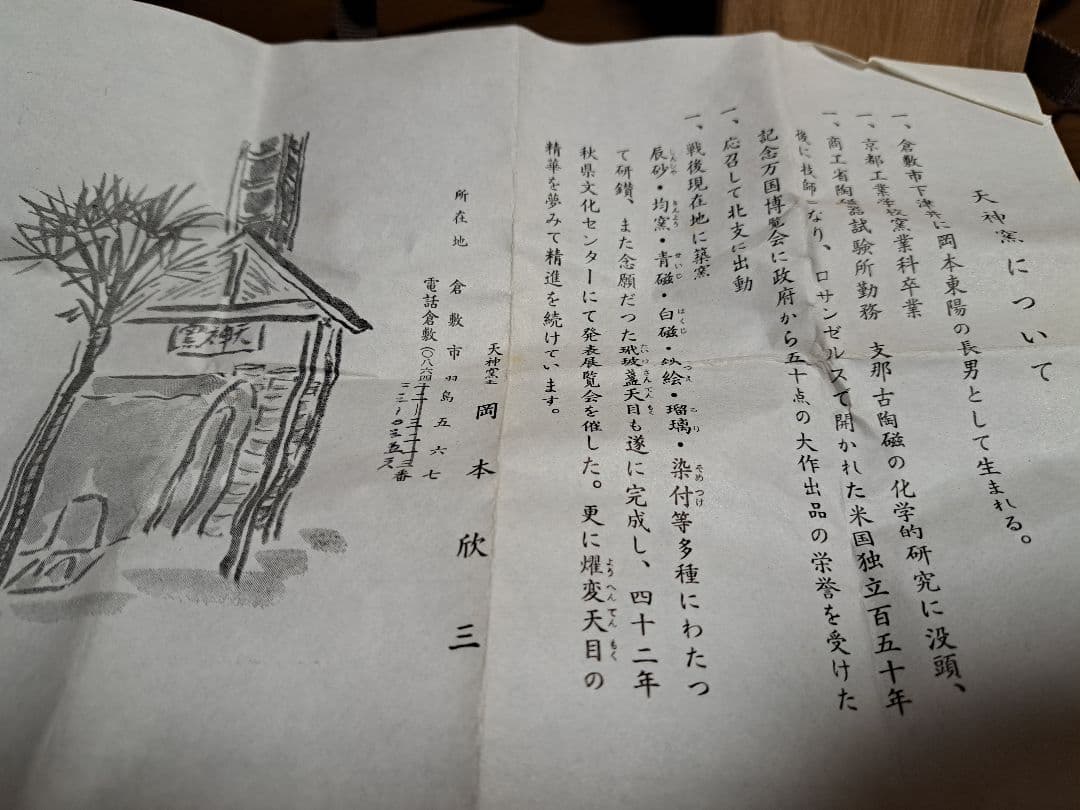 天神窯について
一、倉敷市下津井に岡本東陽の長男として生まれる。
一、京都工業学校窯業科卒業
一、商工省陶磁器試験所勤務 支那古陶磁の化学的研究に没頭、
後に技師となり、ロサンゼルスで開かれた米国独立百五十年
記念万国博覧会に政府から五十点の大作出品の栄誉を受けた
一、応召して北支に出動
一、戦後現在地に築窯
辰砂・均窯・青磁・白磁・絵・瑠璃・染付等多種にわたつ
て研鑽、また念願だった玳玻盞天目も遂に完成し、四十二年
秋県文化センターにて発表展覧会を催した。更に燿変天目の
精華を夢みて精進を続けています。
所在地 倉敷市羽島五六七
電話倉敷(〇八六四)
番
天神窯主 岡本欣三
天神窯